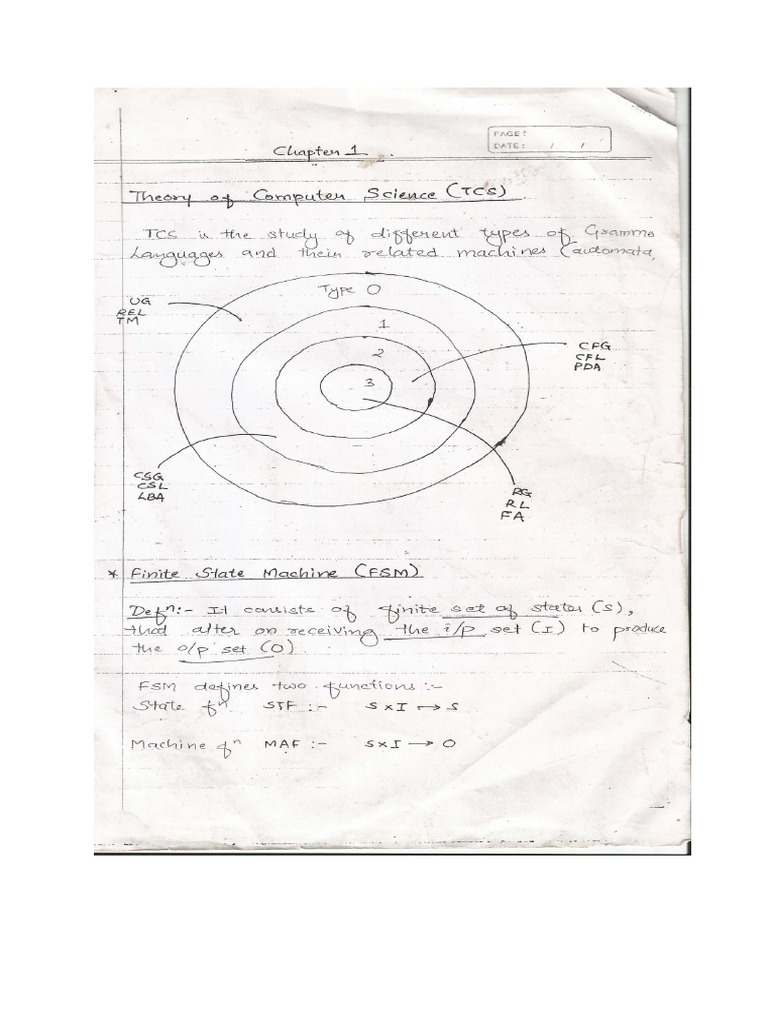 PAGE:
DATE: / /
Chapter 1
Theory of Computer Science (TCS)
TCS is the study of different types of Gramma
Languages and their related machines (automata
Type 0
UG
REL
TM
1
2
3
CFG
CFL
PDA
CSG
CSL
LBA
RG
RL
FA
* Finite State Machine (FSM)
Defⁿ:- It consists of finite set of states (S),
that alter on receiving the i/p set (I) to produce
the o/p set (O).
FSM defines two functions :-
State fⁿ STF :- S x I → S
Machine fⁿ MAF :- S x I → O